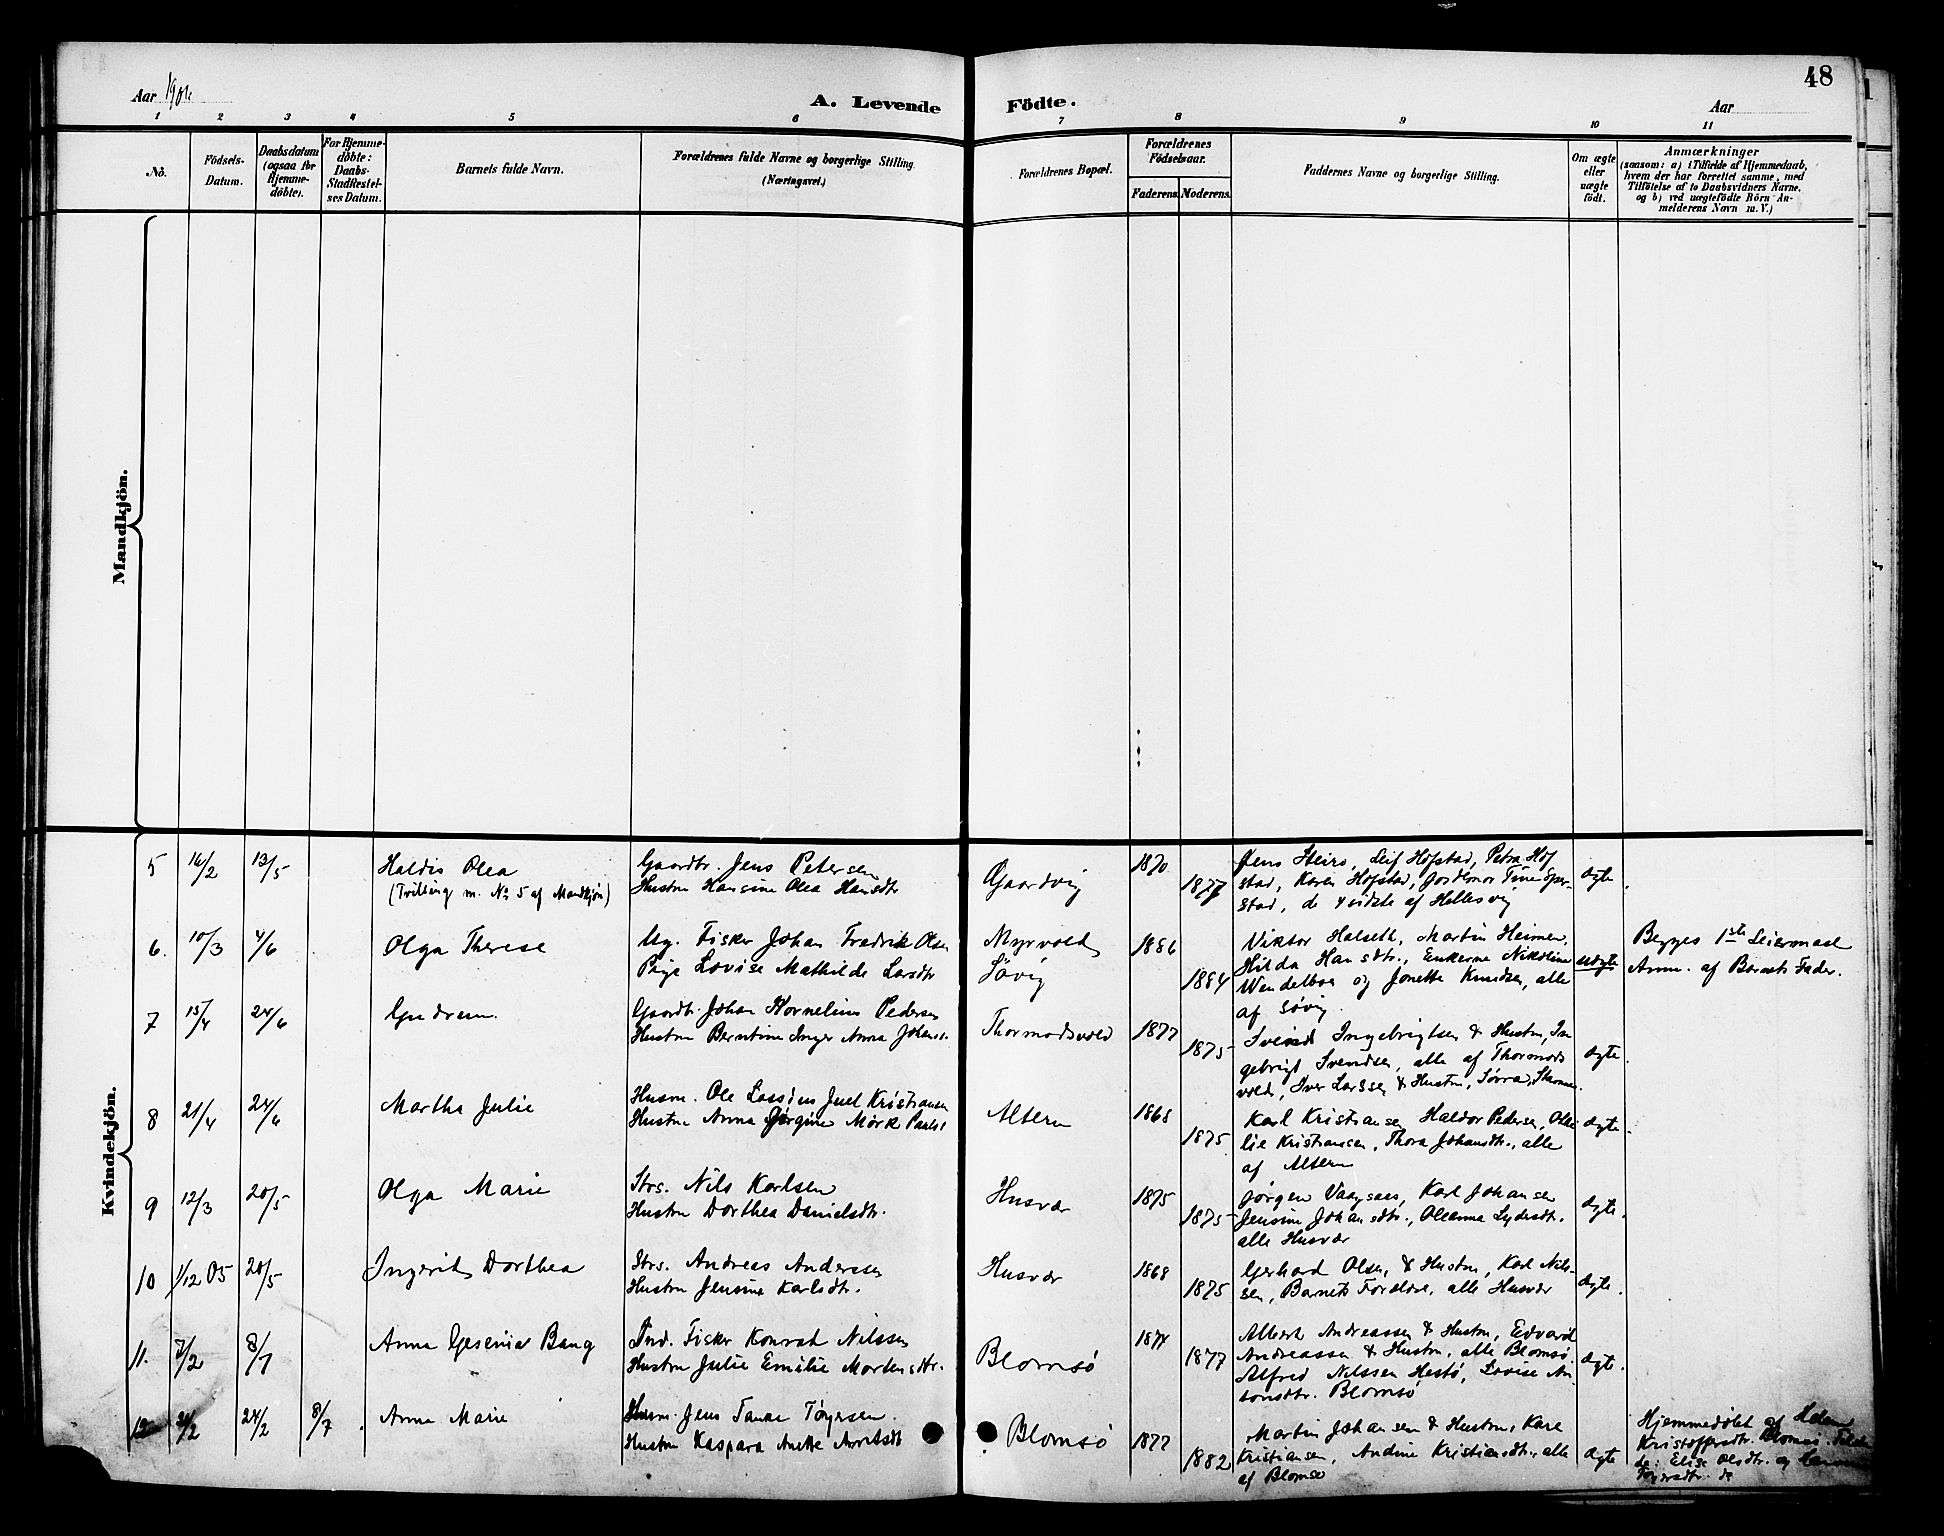 48
Aar 1906
A. Levende Födte.
Aar
1 2 3 4 5 6 7 8 9 10 11
No.
Födsels-
Datum.
Daabsdatum
(ogsaa for
Hjemme-
döbte).
For Hjemme-
döbte:
Daabs-
Stadfestel-
ses Datum.
Barnets fulde Navn.
Forældrenes fulde Navne og borgerlige Stilling.
(Næringsvei.)
Forældrenes Bopæl.
Forældrenes
Födselsaar.
Faderens. Moderens.
Faddernes Navne og borgerlige Stilling.
Om ægte
eller
uægte
födt.
Anmærkninger
(saasom: a) i Tilfælde af Hjemmedaab,
hvem der har forrettet samme, med
Tilföielse af to Daabsvidners Navne,
og b) ved uægtefödte Börn An-
melderens Navn m. V.)
Mandkjön.
Kvindekjön.
5 16/2 13/5
Haldis Olea
(Tvilling m. No 5 af Mandkjön)
Gaardbr. Jens Petersen
Hustru Hansine Olea Hansdtr
Gaardvig
1870
1877
Jens Heirs, Leif Hofstad, Petra Hof
stad, Karen Hofstad, Jordemor Tine Sper-
stad, de 4 sidste af Hellesvig
ægte.
6. 10/3 4/6
Olga Therese
Ug. Fisker Johan Fredrik Olsen
Pige Lovise Mathilde Larsdtr
Myrvold
Søvig
1886
1884
Viktor Halseth, Martin Heimen,
Hilda Hansdtr., Enkerne Nikoline
Wendelboe og Jonette Knudsen, alle
af Søvig
uægte
Begges 1ste Leiermaal
Anm. af Barnets Fader.
7 15/4 24/6
Gudrun.
Gaardbr. Johan Kornelius Pedersen
Hustru Berntine Inger Anna Johans.
Thormodsvold
1877
1875
Svend Ingebrigtsen & Hustru, In
gebrigt Svendsen, alle af Thormods
vold, Iver Larssen & Hustru, Sørra,
ægte.
8 21/4 24/6
Martha Julie
Husm. Ole Lassius Juel Kristiansen
Hustru Anna Jørgine Mørk Pauls
Altern
1868
1875
Karl Kristiansen Haldor Pedersen,
lie Kristiansen, Thora Johansdtr., alle
af Altern
ægte.
9 12/3 20/5
Olga Marie
Strs. Nils Karlsen
Hustru Dorthea Danielsdtr.
Husvær
1875
1875
Jørgen Vaagsaas, Karl Johansen
Jensine Johansdtr., Oleanna Lydersdtr.
alle Husvær
ægte.
10 1/12 05 20/5
Ingerid Dorthea
Strs. Andreas Anderssen
Hustru Jensine Karlsdtr.
Husvær
1868
1875
Gerhard Olsen, & Hustru, Karl Nils-
sen, Barnets Forældre, alle Husvær
ægte.
11. 7/2 8/7
Anna Gesenia Bang
Ind. Fisker Konrad Nilssen
Hustru Julie Emilie Mortensdtr.
Blomsø
1874
1877
Albert Andreassen & Hustru, Edvard
Andreassen & Hustru, alle Blomsø.
Alfred Nilssen Hestø, Lovise An
tonsdtr. Blomsø
ægte.
12 2/2 24/2 8/7
Anna Marie
Husm. Jens Tanke Tøgersen.
Hustru Kaspara Anette Arntsdt
Blomsø
1877
1882
Martin Johansen & Hustru, Kare
Kristiansen, Andine Kristiansdtr., alle
af Blomsø
ægte
Hjemmedøbt af Helene
Kristoffersdtr. Blomsø.
Elise Olsdtr. og
Tøgersdtr. do